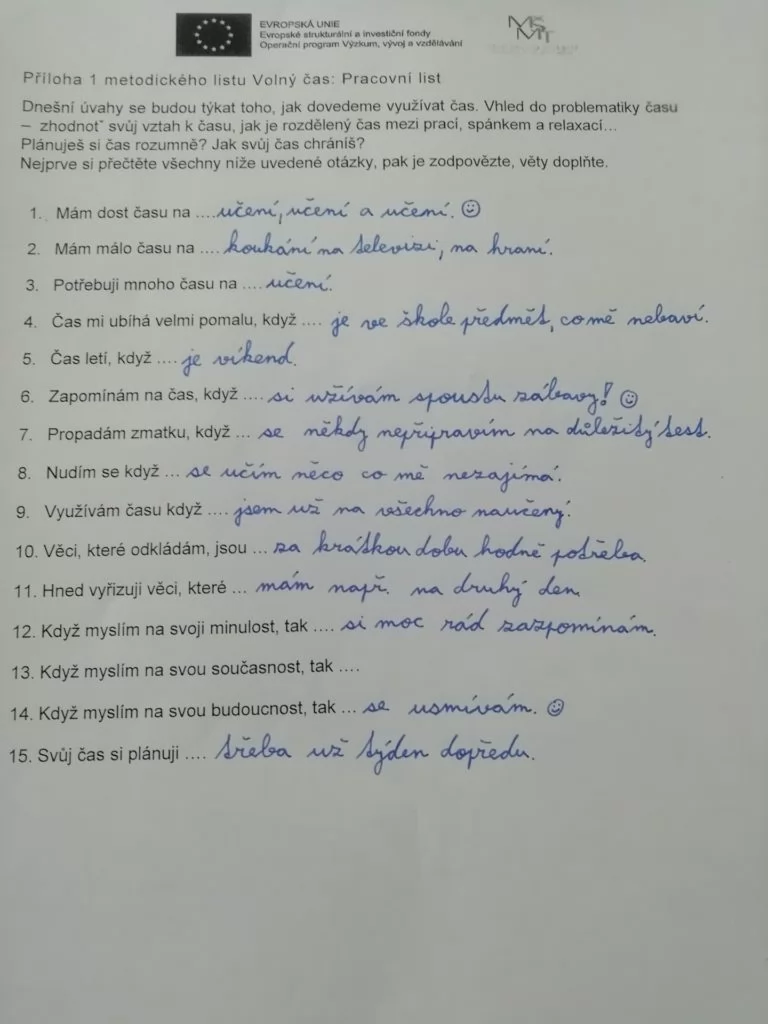 EVROPSKÁ UNIE
Evropské strukturální a investiční fondy
Operační program Výzkum, vývoj a vzdělávání
MŠMT
Příloha 1 metodického listu Volný čas: Pracovní list
Dnešní úvahy se budou týkat toho, jak dovedeme využívat čas. Vhled do problematiky času
– zhodnoťˇ svůj vztah k času, jak je rozdělený čas mezi prací, spánkem a relaxací...
Plánuješ si čas rozumně? Jak svůj čas chráníš?
Nejprve si přečtěte všechny níže uvedené otázky, pak je zodpovězte, věty doplňte.
1. Mám dost času na ....učení, učení a učení. ☺
2. Mám málo času na ....koukání na televizi, na hraní.
3. Potřebuji mnoho času na ....učení.
4. Čas mi ubíhá velmi pomalu, když .... je ve škole předmět, co mě nebaví.
5. Čas letí, když ....je víkend.
6. Zapomínám na čas, když ....si užívám spoustu zábavy! ☺
7. Propadám zmatku, když ... se někdy nepřipravím na důležitý test.
8. Nudím se když ... se učím něco co mě nezajímá.
9. Využívám času když ....jsem už na všechno naučený.
10. Věci, které odkládám, jsou ... za krátkou dobu hodně potřeba.
11. Hned vyřizuji věci, které ... mám např. na druhý den.
12. Když myslím na svoji minulost, tak .... si moc rád zazpomínám.
13. Když myslím na svou současnost, tak ....
14. Když myslím na svou budoucnost, tak ... se usmívám. ☺
15. Svůj čas si plánuji .... třeba už týden dopředu.